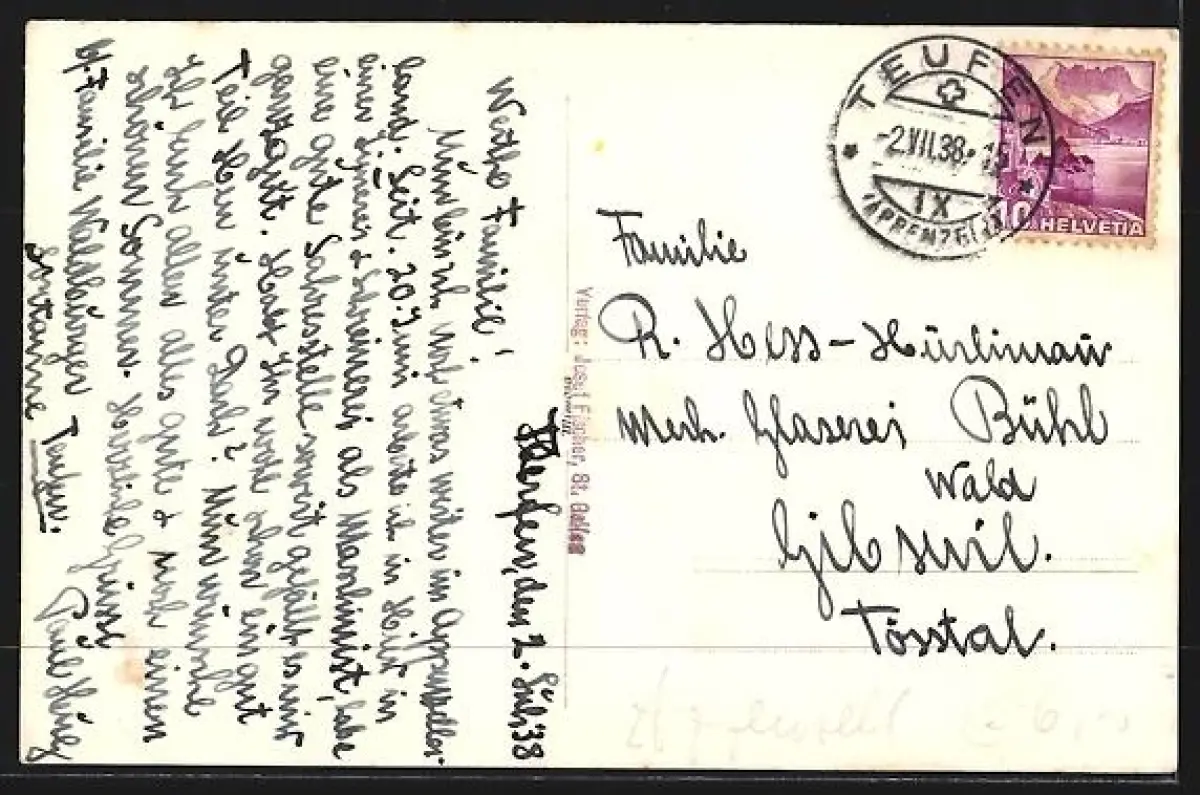 Teufen, den 2. Juli 38
Werthe Familie!
Nun bin ich noch etwas weiter im Appenzeller-
land. Seit 20. Juni arbeite ich in Hier in
einer Zimerei & Schreinerei als Maschinist, habe
eine gute Jahresstelle soweit gefällt es mir
ganz gut. Habt Ihr wohl schon ein gut
Teil Heu unter Dach? Nun wünsche
Ich Euch allen alles gute & noch einen
schönen Sommer. Herzliche Grüsse
Paul
b/. Familie Waldburger Teufen.
Verlag: Josef Fischer, St. Gallen
TEUFEN
-2.VII.38.
IX
(APPENZELL)
10 HELVETIA
Familie
R. Hess-Hürlimann
Mech. Glaserei Bühl
Wald
Gibswil.
Tösstal.